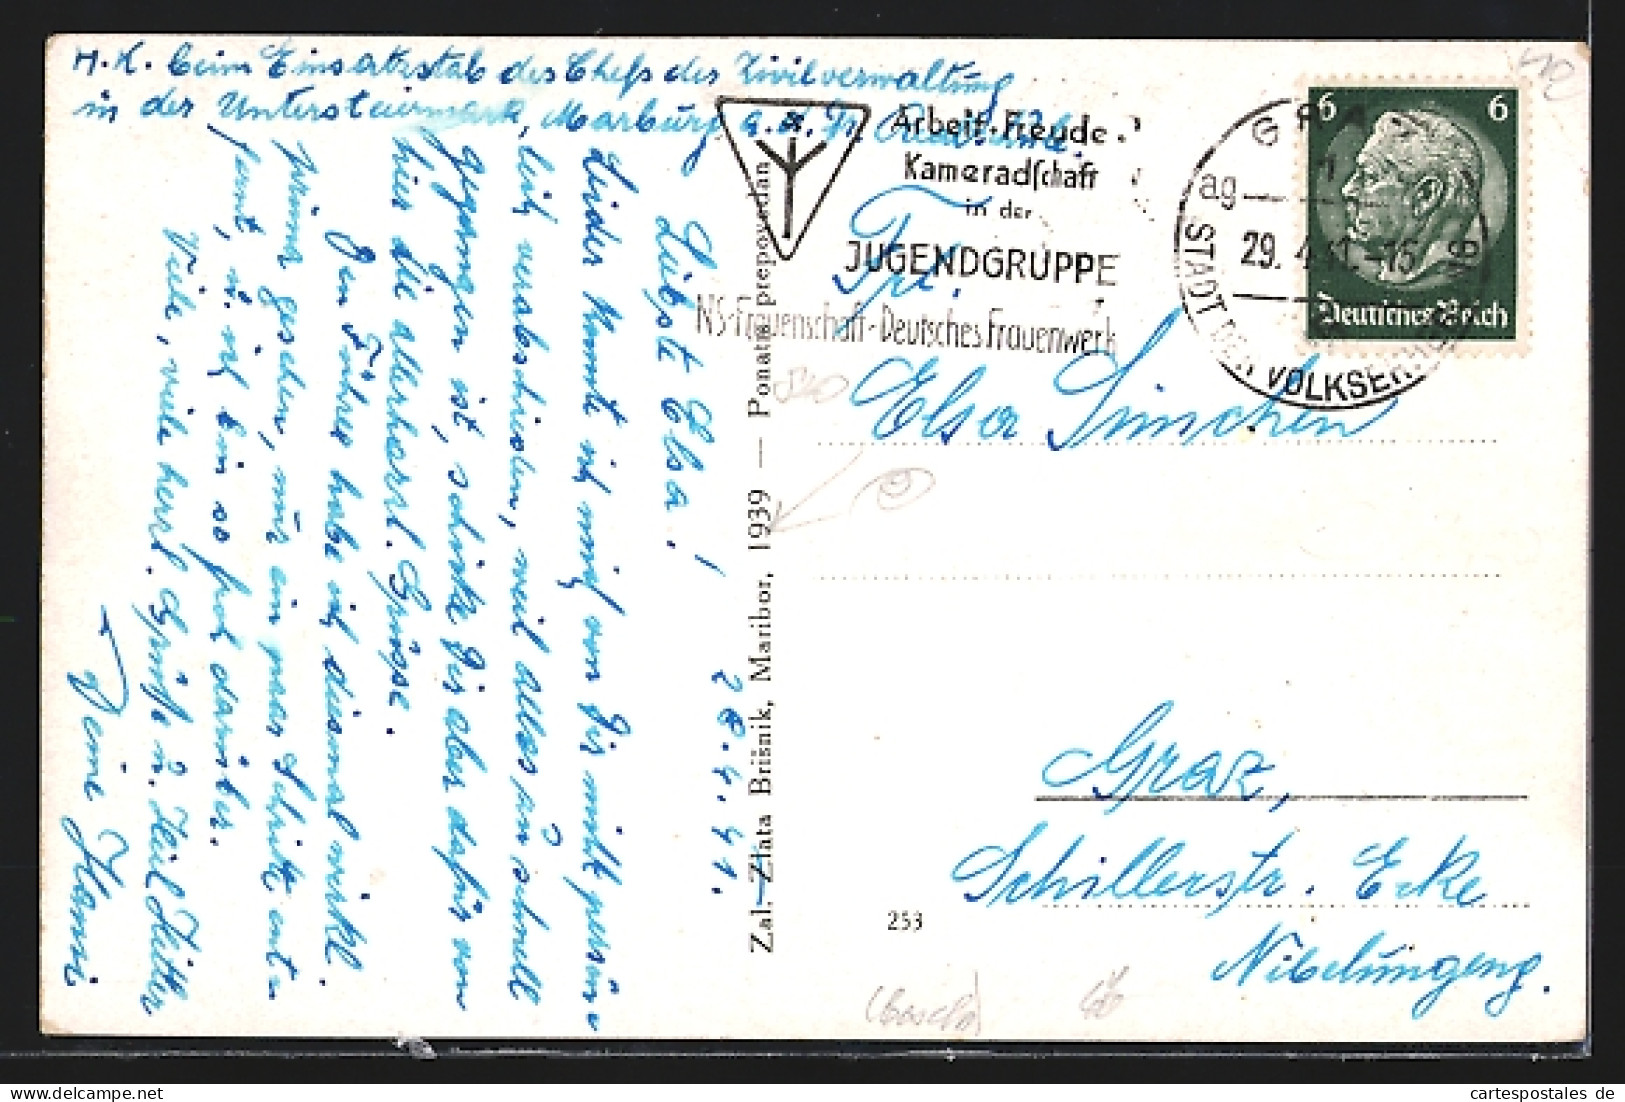 H.K. beim Einsatzstab des Chefs des Zivilverwaltung
in der Untersteiermark, Marburg a.d. Dr.
28.4.41.
Liebste Elsa!
Leider konnte ich mich von Dir nicht persön-
lich verabschieden, weil alles zu schnell
gegangen ist, schicke Dir aber dafür von
hier die allerherzl. Grüsse.
Den Führer habe ich diesmal wirkl.
prima gesehen, nur ein paar Schritte ent-
fernt, u. ich bin so froh darüber.
Viele, viele herzl. Grüße u. Heil Hitler
Deine Hanni
Zal. Zlata Brišnik, Maribor, 1939 — Ponatis prepovedan
Arbeit · Freude
Kameradschaft
in der
JUGENDGRUPPE
NS-Frauenschaft - Deutsches Frauenwerk
GRAZ
1
ag
29. 4. 41. -16
STADT DER VOLKSERHEBUNG
6 6
Deutsches Reich
Frl.
Elsa Simchen
Graz,
Schillerstr. Ecke
Nibelungeng.
253
cartespostales de